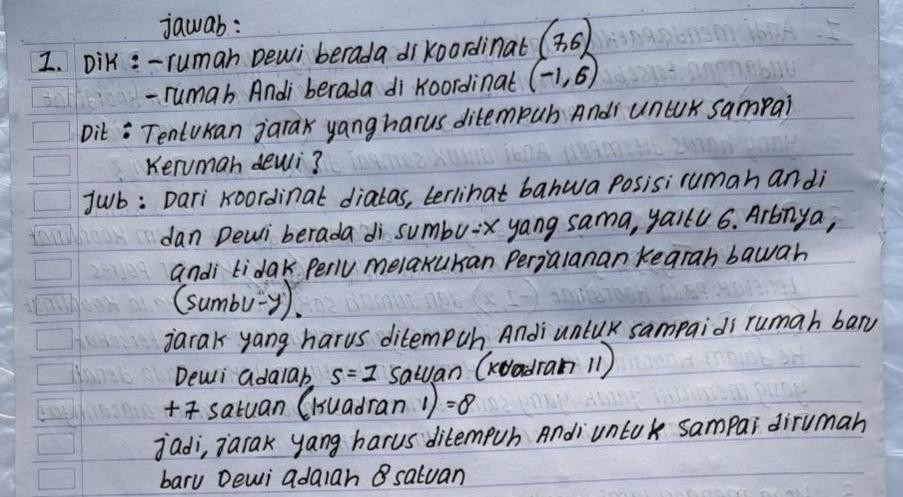 jawab:
1. Dik : - rumah Dewi berada di koordinat (7,6)
- rumah Andi berada di koordinat (-1,6)
Dit : Tentukan jarak yang harus ditempuh Andi untuk sampai
kerumah dewi?
Jwb : Dari koordinat diatas, terlihat bahwa posisi rumah andi
dan Dewi berada di sumbu-x yang sama, yaitu 6. Artinya,
andi tidak perlu melakukan perjalanan kearah bawah
(sumbu-y).
jarak yang harus ditempuh Andi untuk sampai di rumah baru
Dewi adalah s = 1 satuan (kuadran II)
+ 7 satuan (kuadran I) = 8
jadi, jarak yang harus ditempuh Andi untuk sampai dirumah
baru Dewi adalah 8 satuan